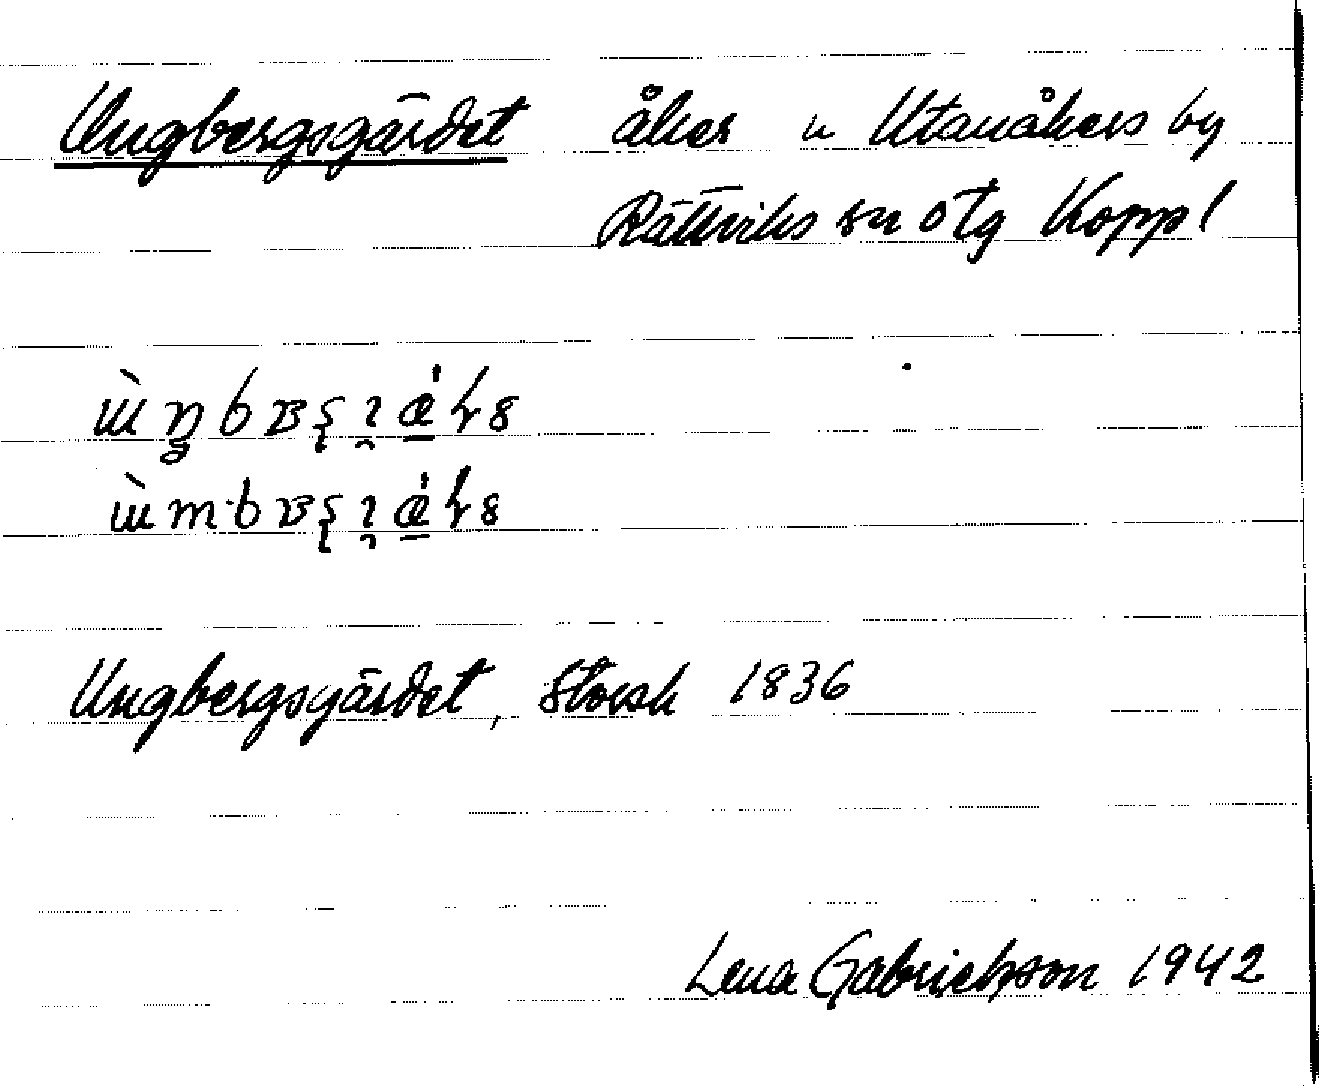 Ungbergsgärdet åker u Utanåkers by
Rättviks sn o tg Koppl
Ungbergsgärdet, Storsk 1836
Lena Gabrielsson 1942